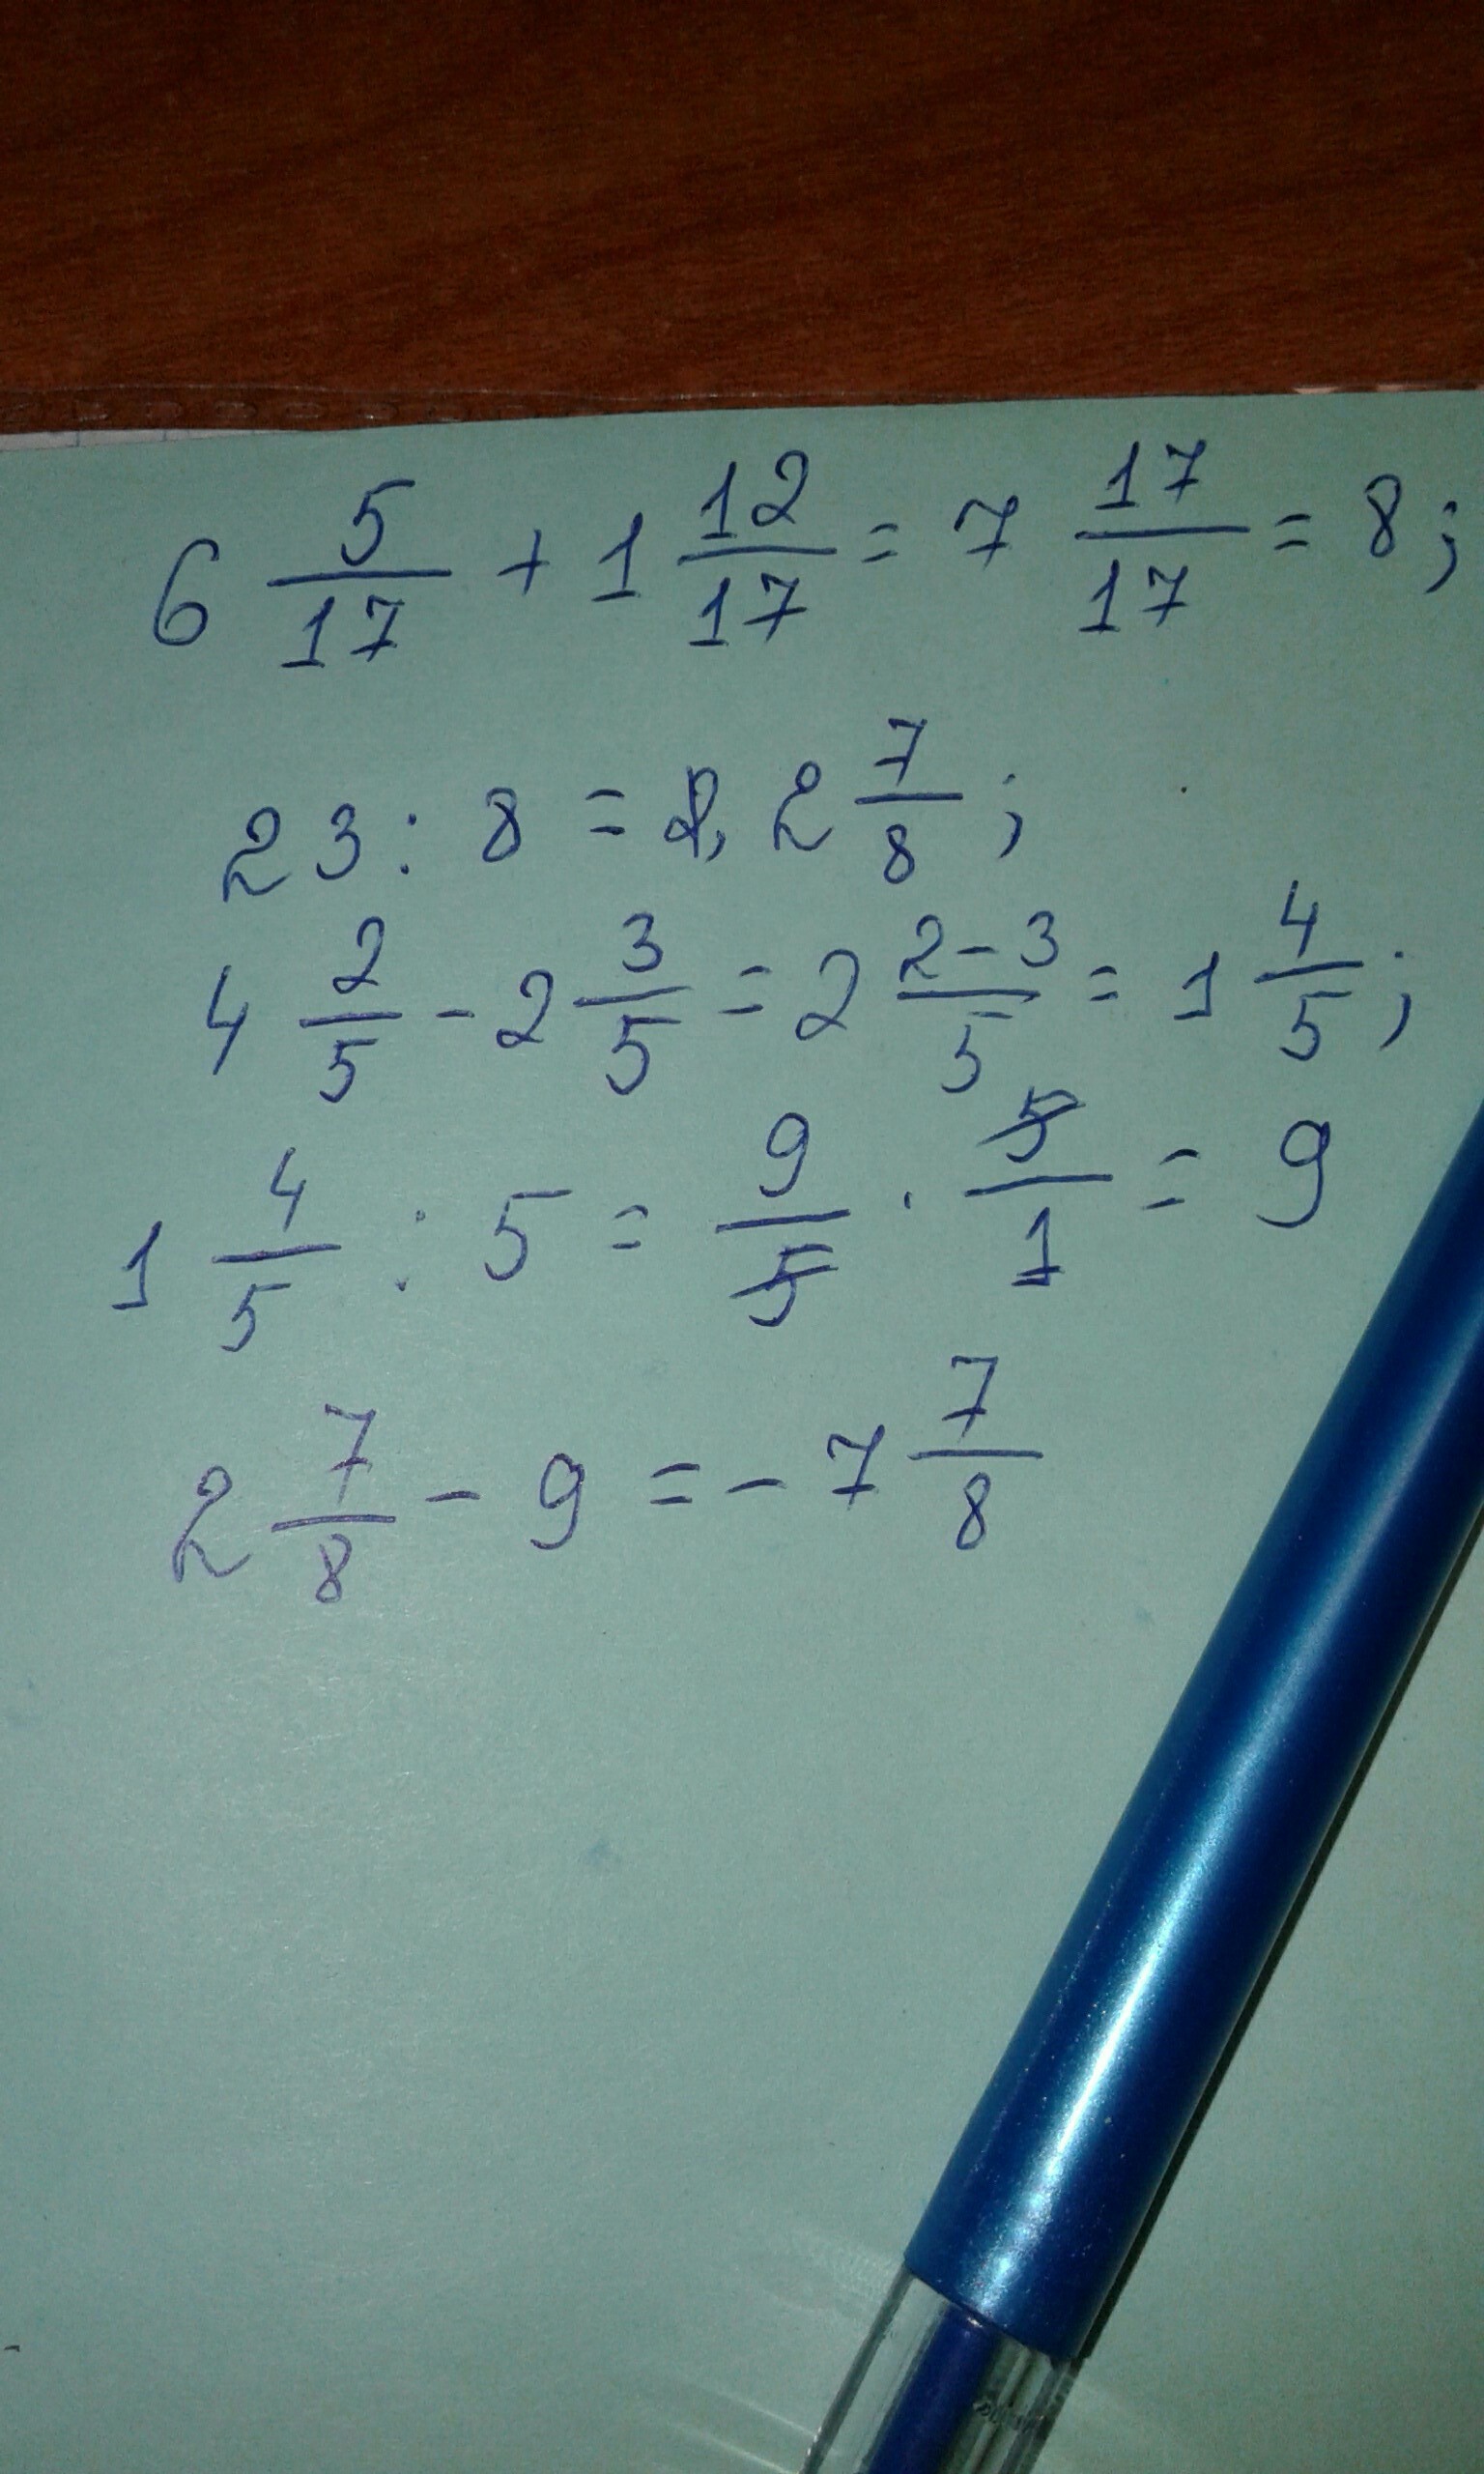 6 5/17 + 1 12/17 = 7 17/17 = 8;
23 : 8 = 2 7/8;
4 2/5 - 2 3/5 = 2 2-3/5 = 1 4/5;
1 4/5 : 5 = 9/5 · 5/1 = 9
2 7/8 - 9 = - 7 7/8